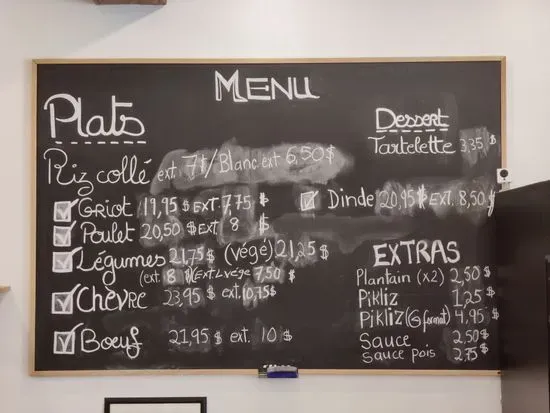 MENU
Plats
Riz collé ext 7$/Blanc ext 6,50$
Griot 19,95 $ EXT 7,75 $
Poulet 20,50 $ EXT 8 $
Légumes 21,75 $ (végé) 21,25 $
(ext 8 $)(EXT L végé 7,50 $
Chèvre 23,95 $ ext. 10,75$
Boeuf 21,95 $ ext. 10 $
Dessert
Tartelette 3,35 $
Dinde 20,95 $ EXT. 8,50 $
EXTRAS
Plantain (x2) 2,50 $
Pikliz 1,25 $
Pikliz (G format) 4,95 $
Sauce 2,50 $
Sauce pois 2,75 $